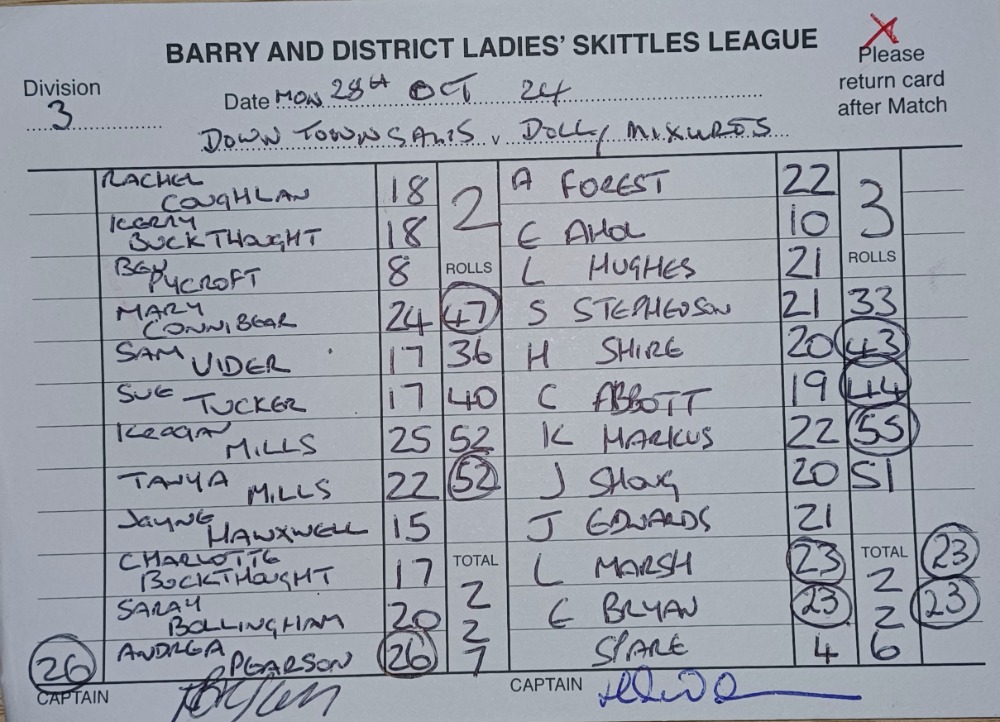 BARRY AND DISTRICT LADIES' SKITTLES LEAGUE
X
Please
return card
after Match
Division
3
Date MON 28th OCT 24
DOWN TOWN GALIS v DOLLY MIXURES
RACHEL COUGHLAN 18 2 A FOREST 22 3
KERRY BUCKTHOUGHT 18 E 10
BEV PYCROFT 8 ROLLS L HUGHES 21 ROLLS
MARY CONNIBEAR 24 47 S STEPHENSON 21 33
SAM VIDER 17 36 H SHIRE 20 43
SUE TUCKER 17 40 C ABBOTT 19 44
KEOGAN MILLS 25 52 K MARKUS 22 55
TANYA MILLS 22 52 J 20 51
JAYNE HAWXWELL 15 J EDWARDS 21
CHARLOTTE BUCKTHOUGHT 17 TOTAL 2 L MARSH 23 TOTAL 2 23
SARAH BOLLINGHAM 20 2 E BRYAN 23 2 23
26 ANDREA PEARSON 26 7 SPARE 4 6
CAPTAIN CAPTAIN